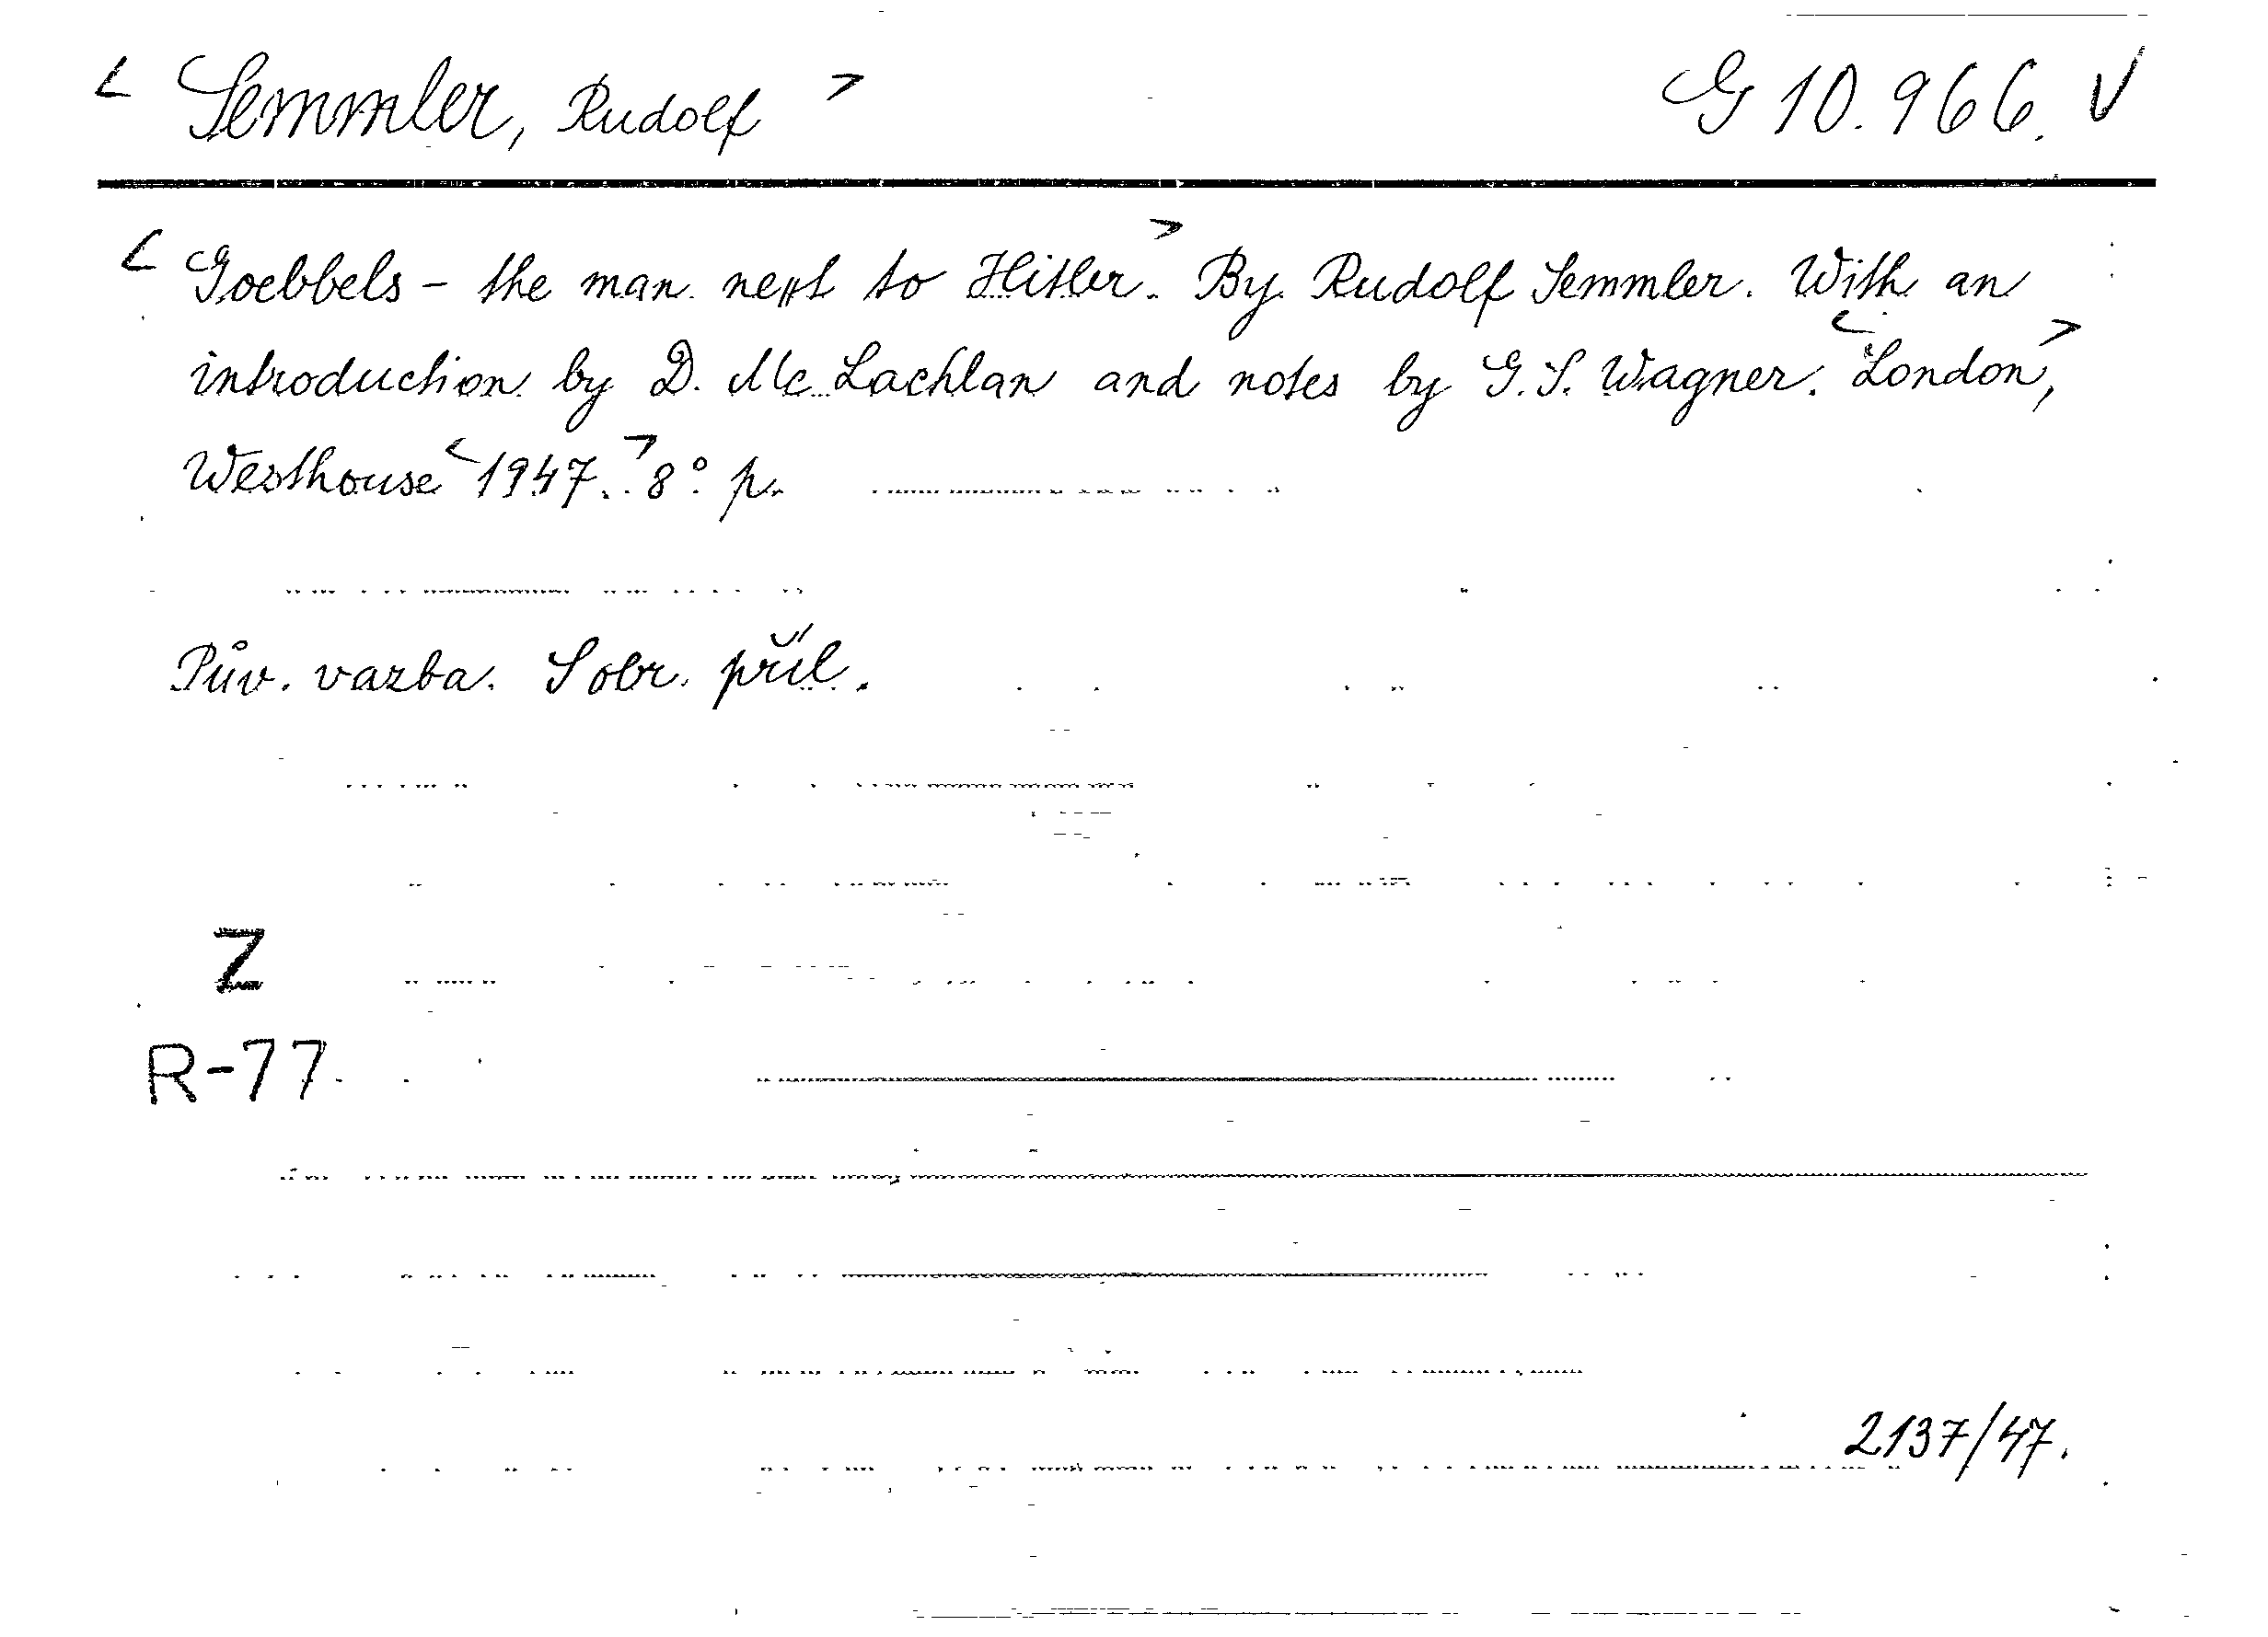 < Semmler, Rudolf > G 10.966. V
< Goebbels - the man next to Hitler.> By Rudolf Semmler. With an
introduction by D. Mc Lachlan and notes by G.S. Wagner. <London,>
Westhouse <1947.> 8° p.
Pův. vazba. S obr. příl.
Z
R-77
2137/47.